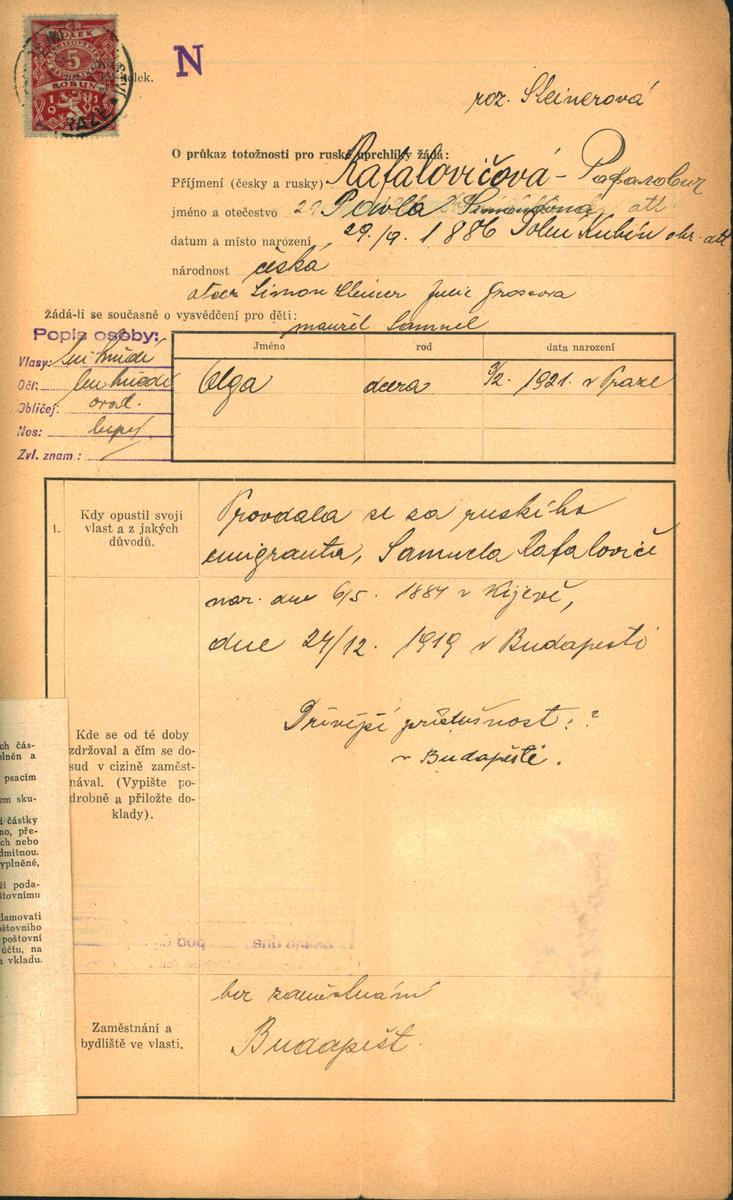 KOLEK
5
KORUN
1919
kolek.
N
roz. Steinerová
O průkaz totožnosti pro ruské uprchlíky žádá:
Příjmení (česky a rusky) Rafalovičová - Рафалович
jméno a otečestvo Pavla Simonovna
datum a místo narození 29./9. 1886 Dolní Kubín
národnost česká
otec Simon Steiner Julie Grossova
Žádá-li se současně o vysvědčení pro děti:
manžel Samuel
Popis osoby:
Vlasy:
Oči:
Obličej: oval.
Nos:
Zvl. znam:
Jméno rod data narození
Olga dcera 1921. v Praze
1. Kdy opustil svoji
vlast a z jakých
důvodů.
Provdala se za ruského
emigranta, Samuela Rafaloviče
nar. dne 6/5. 1884 v Kijevě,
dne 24/12. 1919 v Budapešti
Kde se od té doby
zdržoval a čím se do-
sud v cizině zaměst-
nával. (Vypište po-
drobně a přiložte do-
klady).
Dřívější příslušnost: ?
v Budapešti.
Zaměstnání a
bydliště ve vlasti.
bez zaměstnání
Budapešt.
ch čás-
plněn a
psacím
em sku-
í částky
no, pře-
ch nebo
dmítnou.
yplněné,
ži poda-
štovnímu
lamovati
oštovního
poštovní
účtu, na
vkladu.